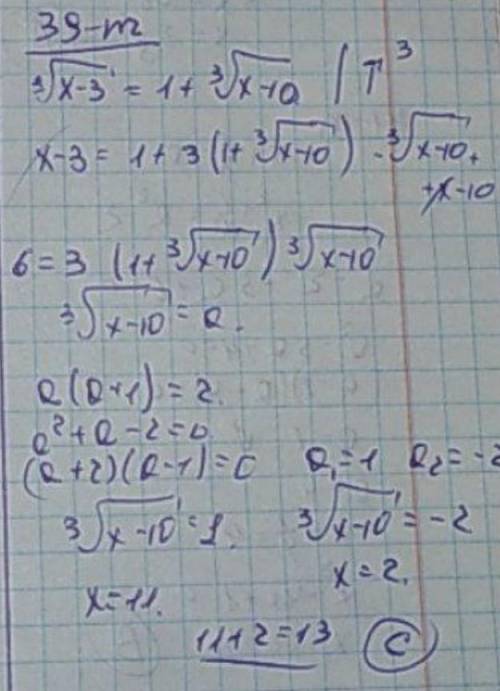 39-m
∛(x-3) = 1 + ∛(x-10) | T³
x-3 = 1 + 3(1 + ∛(x-10)) · ∛(x-10) +
+x-10
6 = 3 (1 + ∛(x-10)) ∛(x-10)
∛(x-10) = a.
a(a+1) = 2.
a² + a - 2 = 0
(a+2)(a-1) = 0 a₁ = 1 a₂ = -2
∛(x-10) = 1. ∛(x-10) = -2
x = 2.
x = 11.
11 + 2 = 13 C